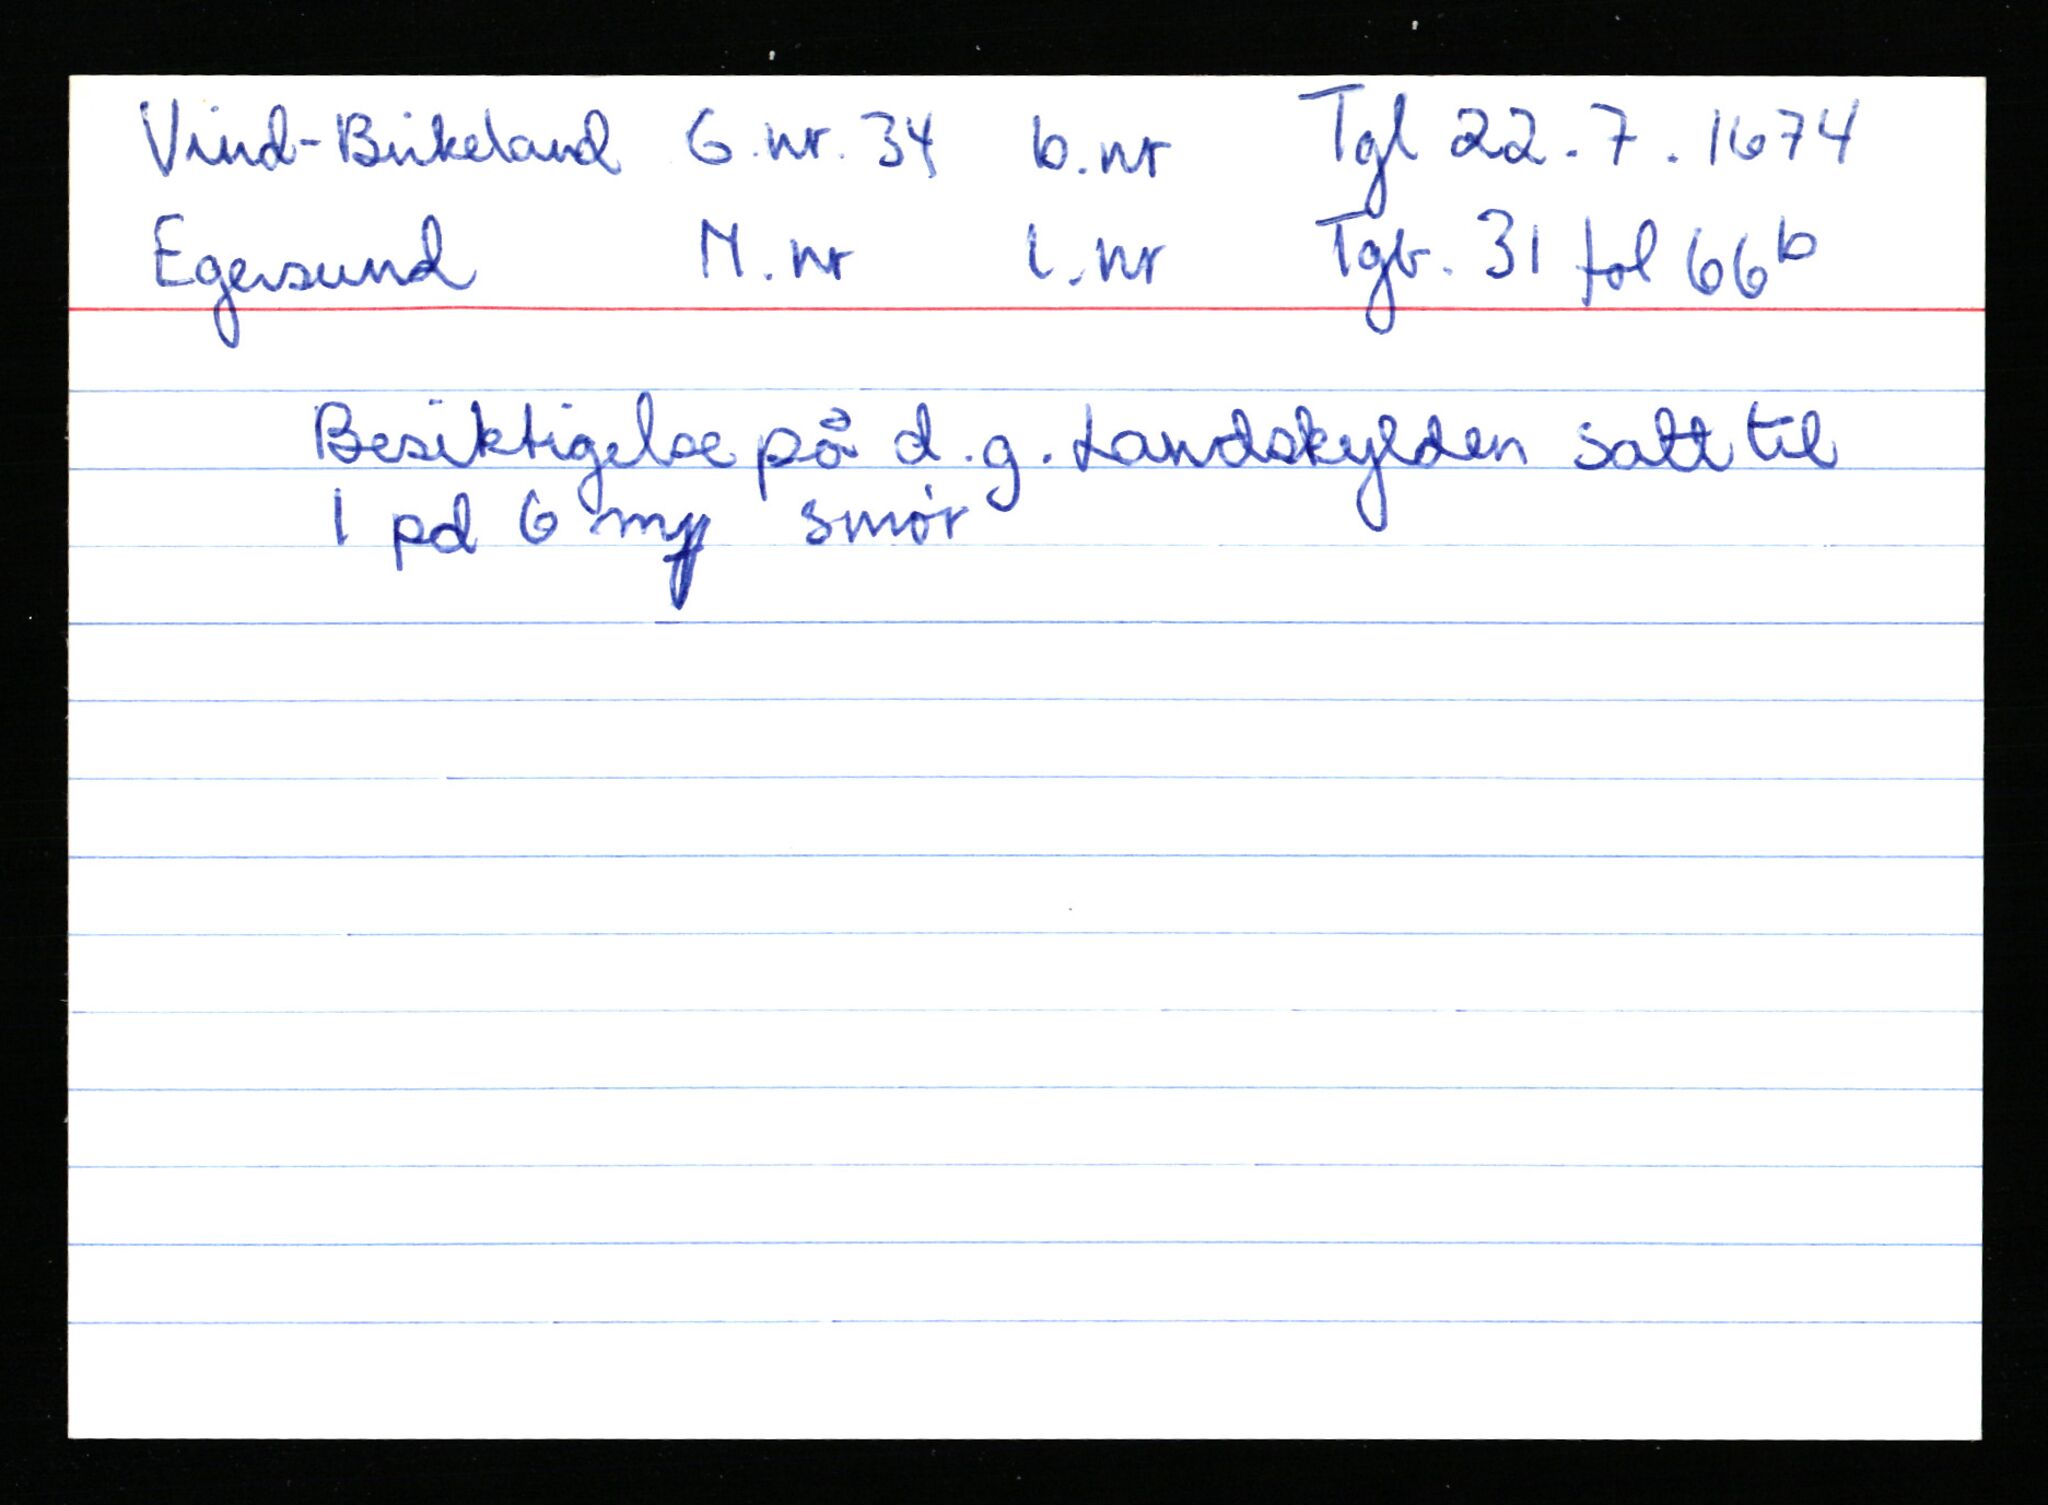 Vind-Birkeland G.nr. 34 b.nr Tgl 22.7.1674
Egersund M.nr L.nr Tgb. 31 fol 66b
Besiktigelse på d.g. Landskylden satt til
1 pd 6 mrk smør